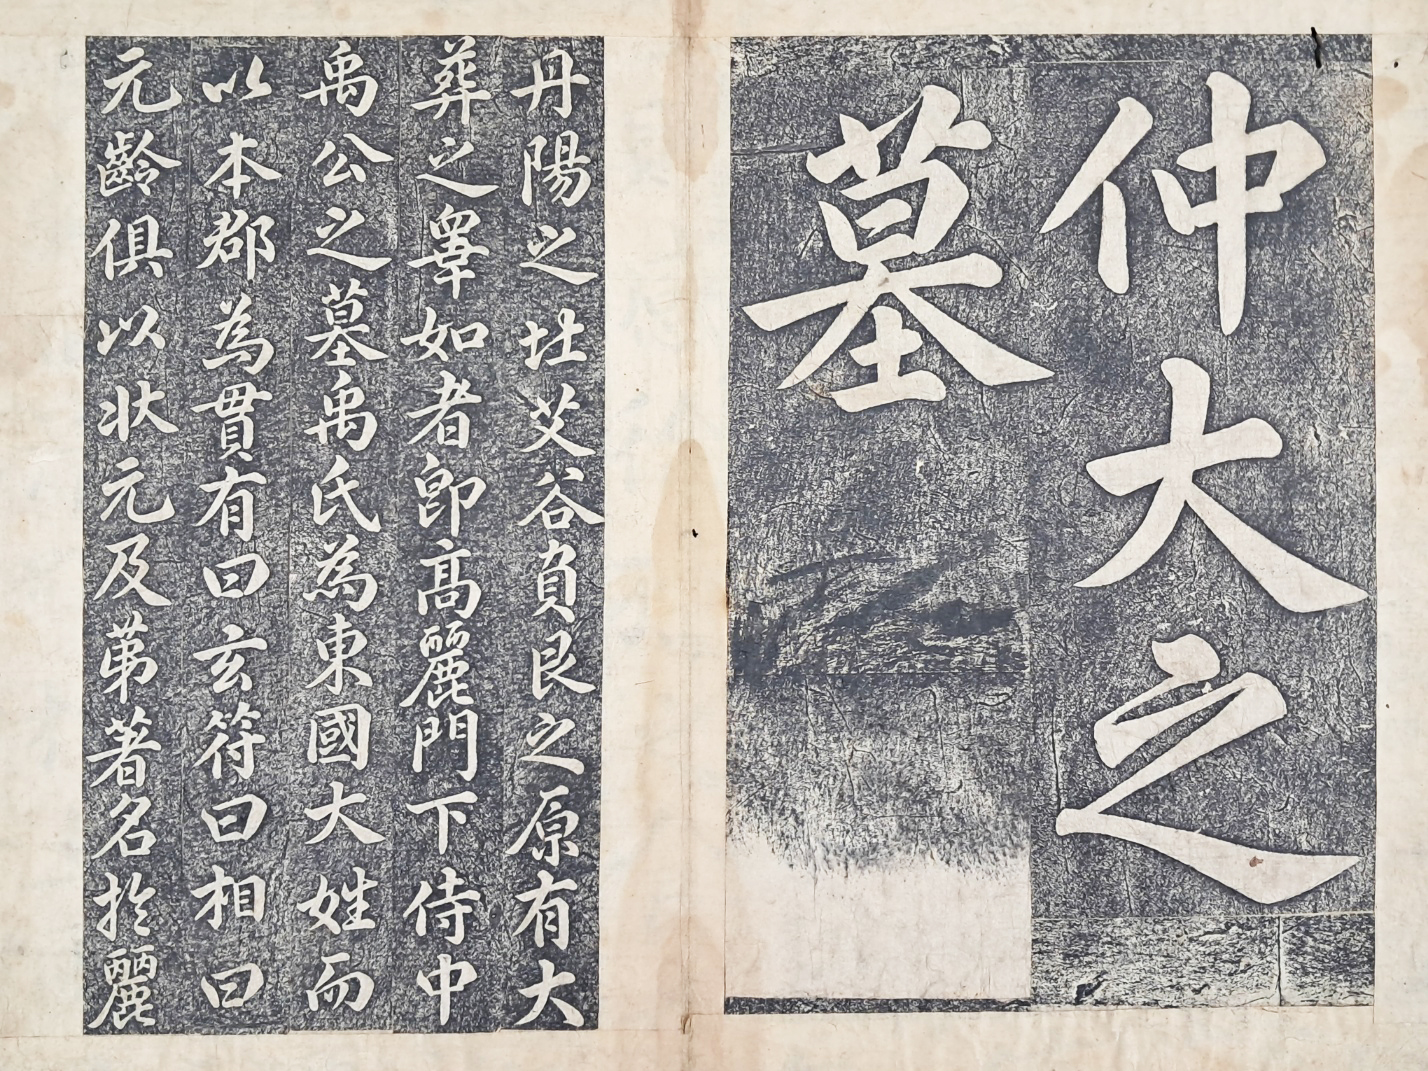 仲大之
墓
丹陽之壯艾谷負艮之原有大
葬之睾如者即高麗門下侍中
禹公之墓禹氏為東國大姓而
以本郡為貫有曰玄符曰相曰
元齡俱以狀元及苐著名於麗